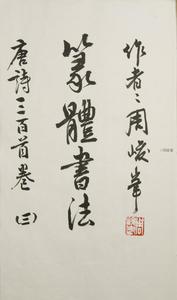 作者：周峻峯
篆體書法
唐詩三百首卷（三）